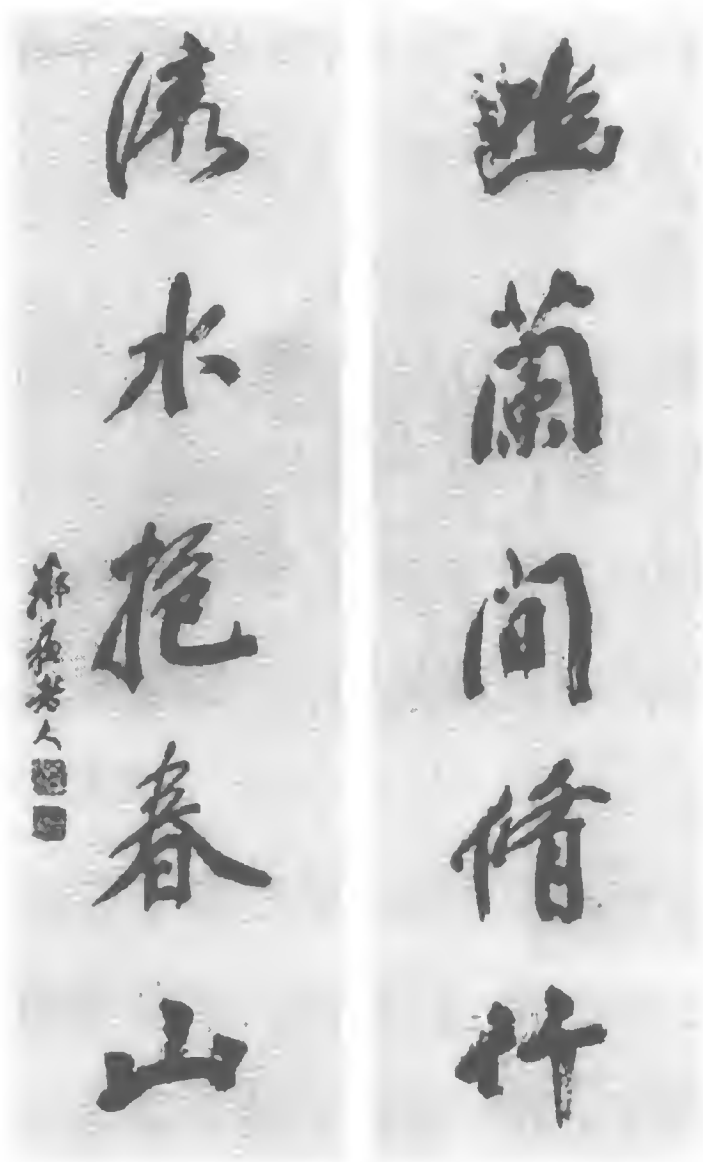 幽蘭間脩竹
流水抱春山
鄰蘇老人